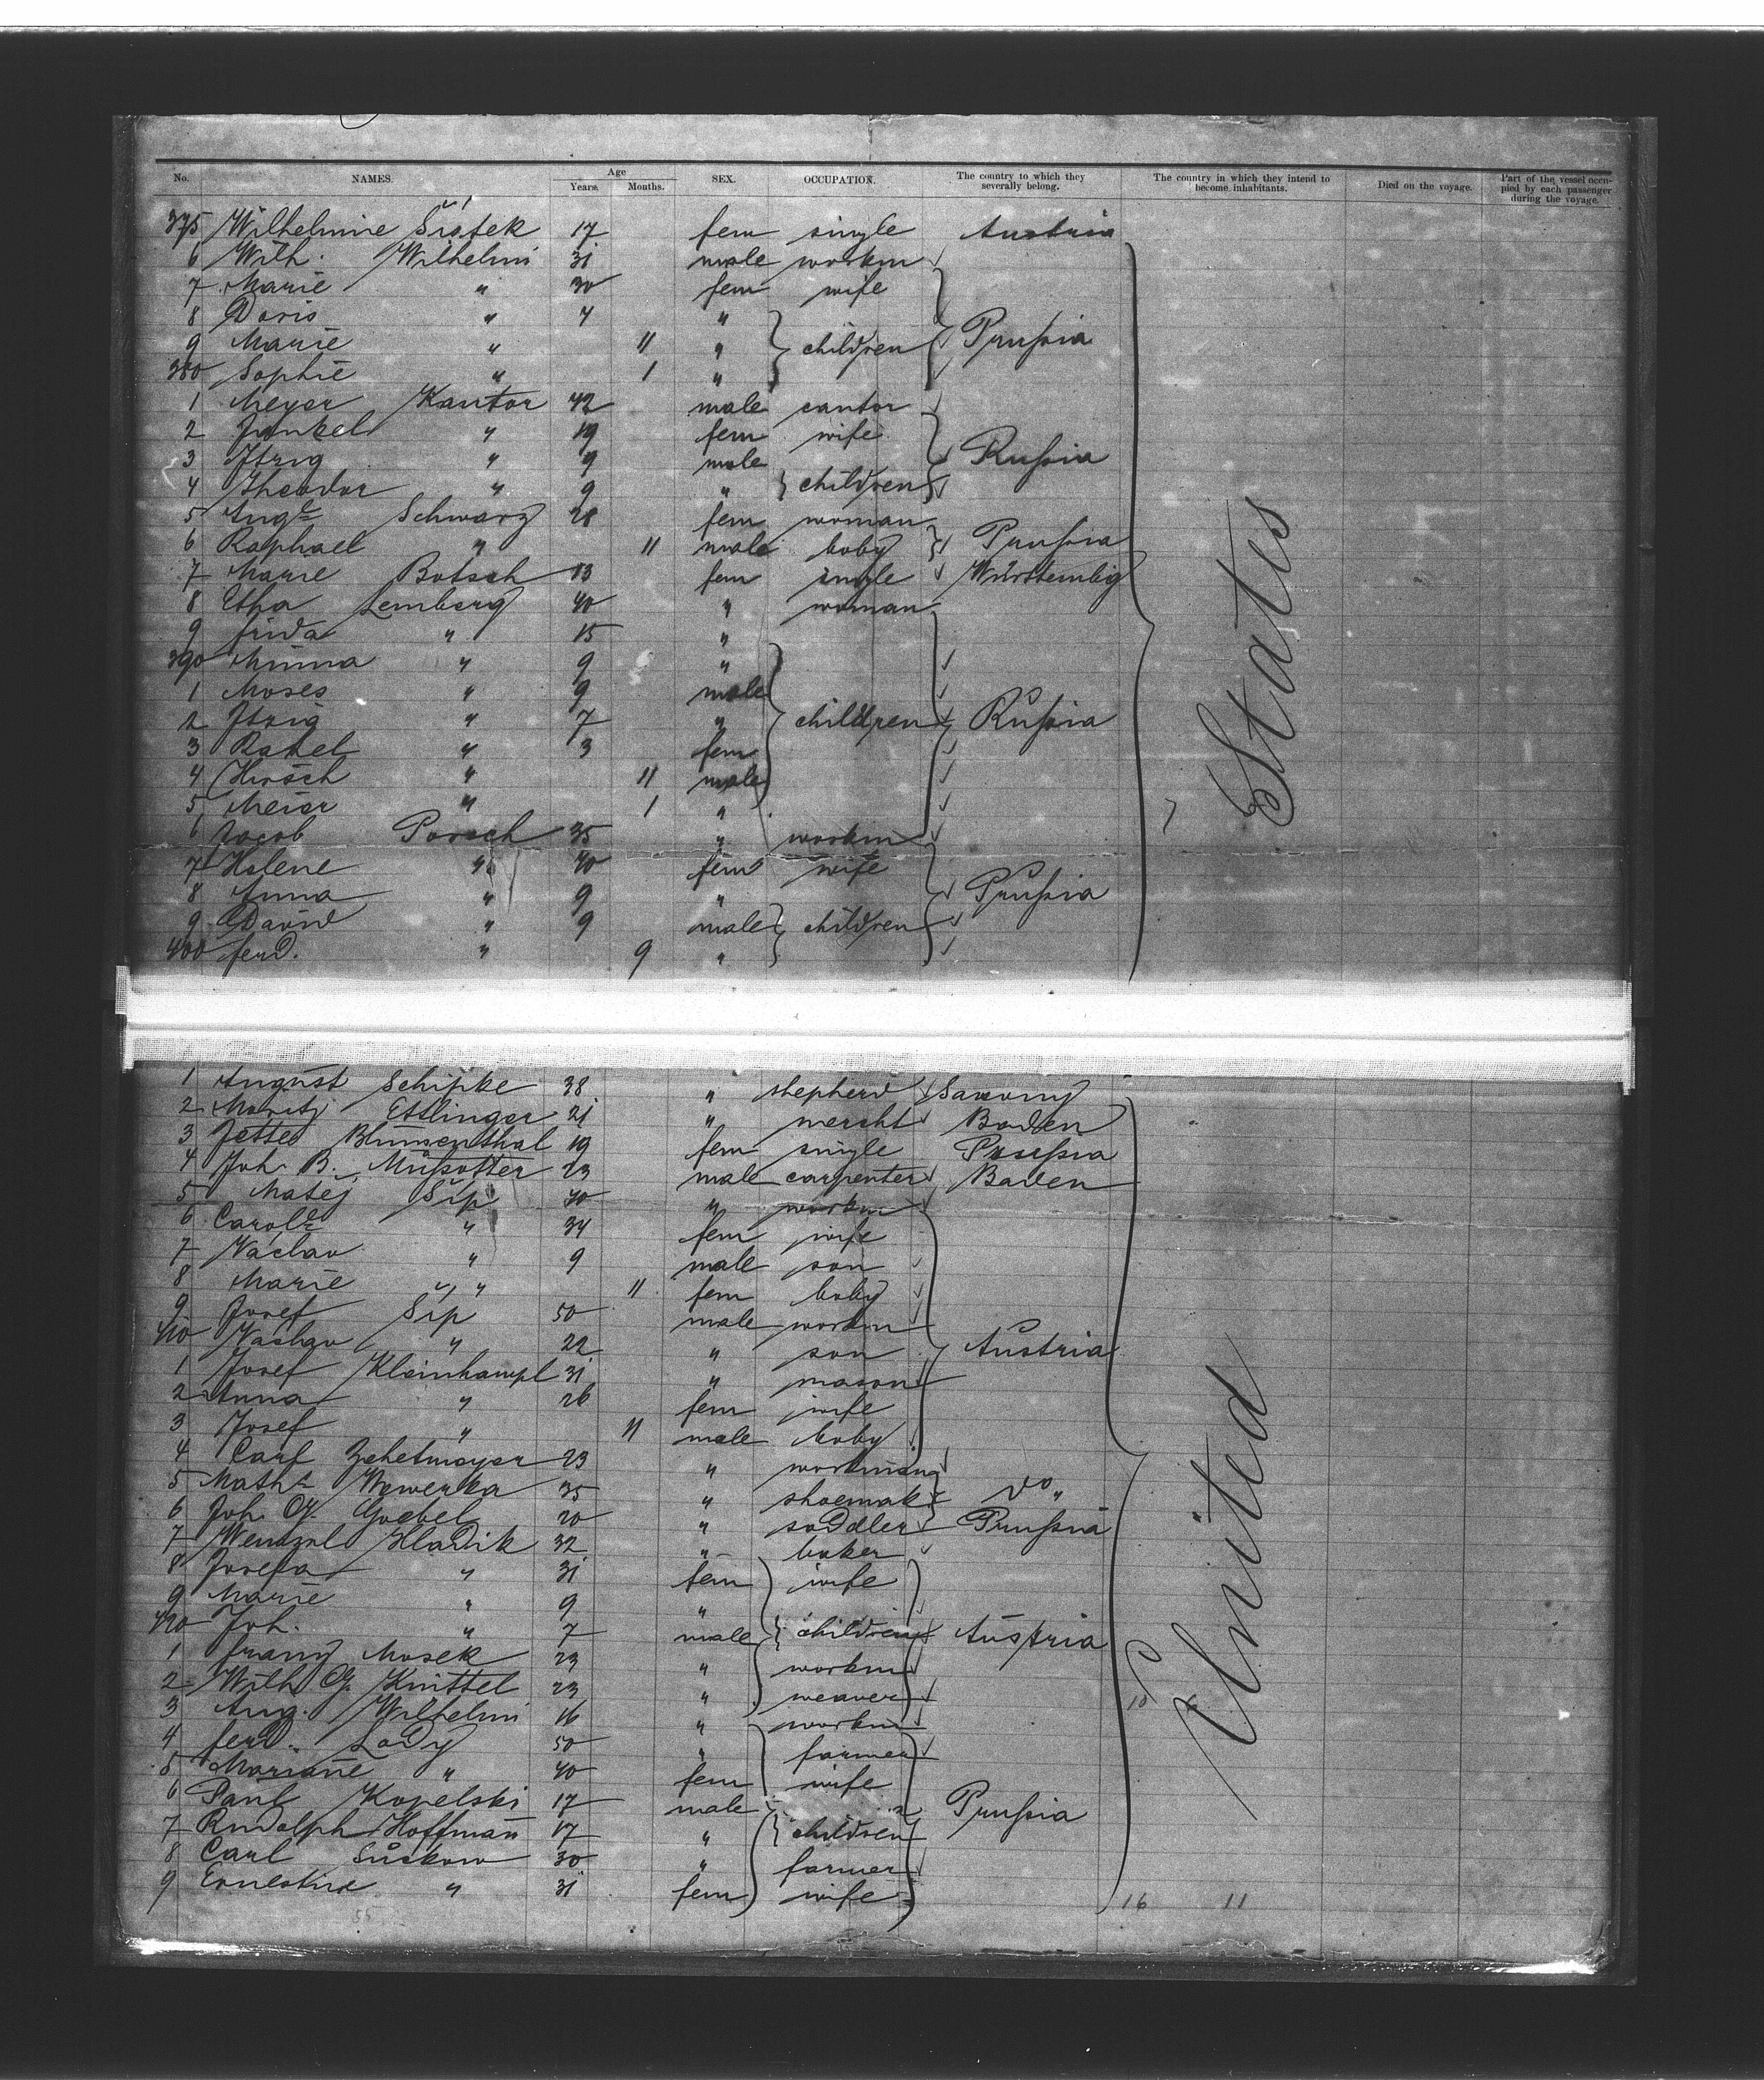 No. NAMES. Age Years. Months. SEX. OCCUPATION. The country to which they severally belong. The country in which they intend to become inhabitants. Died on the voyage. Part of the vessel occupied by each passenger during the voyage.
375 Wilhelmine Šístek 17 fem single Austria
6 Wilh. Wilhelmi 31 male workm
7 Marie " 30 fem wife
8 Doris " 4 "
9 Marie " 11 " children Prußia
380 Sophie " 1 "
1 Meyer Kantor 42 male cantor
2 Jankel " 19 fem wife
3 Itzig " 9 male Rußia
4 Theodor " 9 " children
5 Auge Schwarz 28 fem woman
6 Raphael " 11 male baby Prußia
7 Marie Botsch 13 fem single Württembg
8 Etha Lemberg 40 " woman
9 Frida " 15 "
390 Minna " 9 "
1 Moses " 9 male
2 Itzig " 7 " children Rußia
3 Rahel " 3 fem
4 Hirsch " 11 male
5 Meier " 1 "
6 Jacob Porsch 35 " workm
7 Helene " 40 fem wife
8 Anna " 9 " Prußia
9 David " 9 male children
400 Ferd. " 9 "
States
1 August Schipke 38 " shepherd Saxony
2 Moritz Ettlinger 21 " mercht Baden
3 Jette Blumenthal 19 fem single Prußia
4 Joh. B. Mußotter 23 male carpenter Baden
5 Matej Šíp 40 " workm
6 Carole " 34 fem wife
7 Václav " 9 male son
8 Marie " 11 fem baby
9 Josef Šíp 50 male workm
410 Vaclav " 22 " son Austria
1 Josef Kleinhampl 31 " mason
2 Anna " 26 fem wife
3 Josef " 11 male baby
4 Carl Zehetmayer 23 " workman
5 Maths Wewerka 35 " shoemakr do "
6 Joh. Gg. Goebel 20 " saddler Prußia
7 Wenzel Hladik 32 " baker
8 Josefa " 31 fem wife
9 Marie " 9 "
420 Joh. " 7 male children Austria
1 Franz Mosek 23 " workm
2 Wilh. Gg. Knittel 23 " weaver
3 Aug. Wilhelmi 16 " workm
4 Ferd. Lody 50 " farmer
5 Mariane " 40 fem wife
6 Paul Kopelski 17 male Prußia
7 Rudolph Hoffman 17 " children
8 Carl Suckow 30 " farmer
9 Ernestine " 31 fem wife
United
16 11